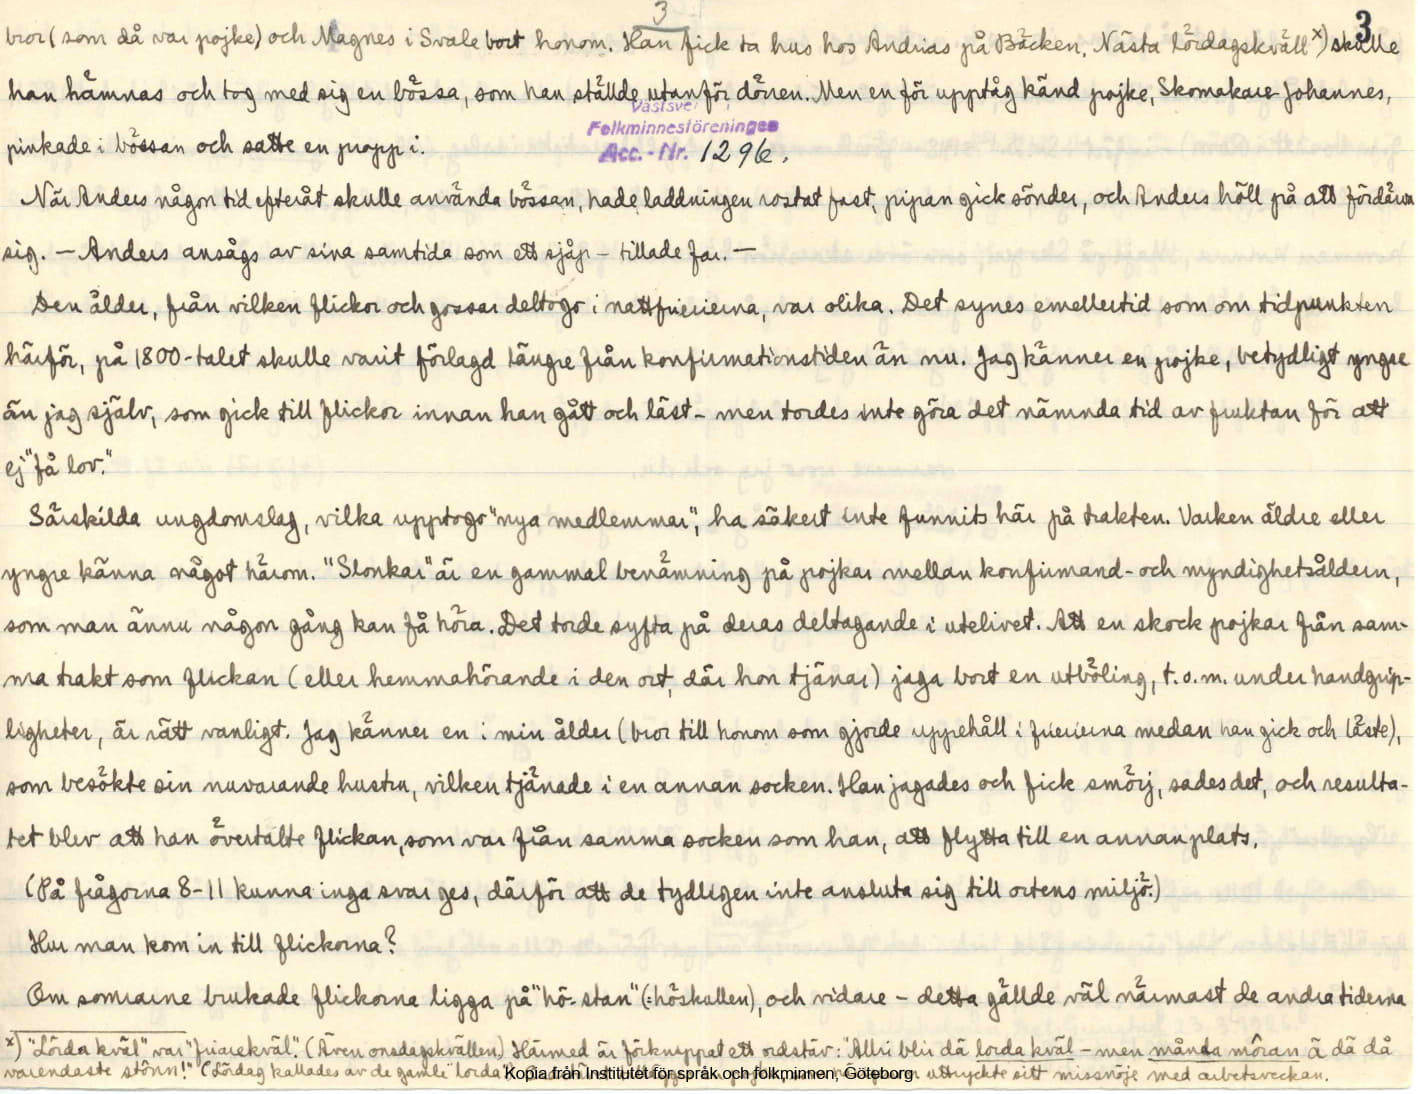 3
3
bror (som då var pojke) och Magnes i Svale bort honom. Han fick ta hus hos Andrias på Bäcken. Nästa lördagskväll x) skulle
han hämnas och tog med sig en bössa, som han ställde utanför dörren. Men en för upptåg känd pojke, Skomakare Johannes,
pinkade i bössan och satte en propp i.
Folkminnesföreningen
Acc.-Nr. 1296.
När Anders någon tid efteråt skulle använda bössan, hade laddningen rostat fast, pipan gick sönder, och Anders höll på att fördärva
sig. — Anders ansågs av sina samtida som ett sjåp – tillade far. —
Den ålder, från vilken flickor och gossar deltogo i nattfrierierna, var olika. Det synes emellertid som om tidpunkten
härför, på 1800-talet skulle varit förlagd längre från konfirmationstiden än nu. Jag känner en pojke, betydligt yngre
än jag själv, som gick till flickor innan han gått och läst – men tordes inte göra det nämnda tid av fruktan för att
ej "få lov."
Särskilda ungdomslag, vilka upptogo "nya medlemmar", ha säkert inte funnits här på trakten. Varken äldre eller
yngre känna något härom. "Slonkar" är en gammal benämning på pojkar mellan konfirmand- och myndighetsåldern,
som man ännu någon gång kan få höra. Det torde syfta på deras deltagande i utelivet. Att en skock pojkar från sam-
ma trakt som flickan (eller hemmahörande i den ort, där hon tjänar) jaga bort en utböling, t.o.m. under handgrip-
ligheter, är rätt vanligt. Jag känner en i min ålder (bror till honom som gjorde uppehåll i frierierna medan han gick och läste),
som besökte sin nuvarande hustru, vilken tjänade i en annan socken. Han jagades och fick smörj, sades det, och resulta-
tet blev att han övertalte flickan, som var från samma socken som han, att flytta till en annan plats.
(På frågorna 8-11 kunna inga svar ges, därför att de tydligen inte ansluta sig till ortens miljö.)
Hur man kom in till flickorna?
Om somrarne brukade flickorna ligga på "hö-stan" (: höskullen), och vidare – detta gällde väl närmast de andra tiderna
x) "Lörda kväl" var "friarekväl". (Även onsdagskvällen.) Härmed är förknippat ett ordstäv: "Allri blir dä lorda kväl – men månda môran ä dä då
varendaste stönn!" (Lördag kallades av de gamle "lorda" uttryckte sitt missnöje med arbetsveckan.
Kopia från Institutet för språk och folkminnen, Göteborg